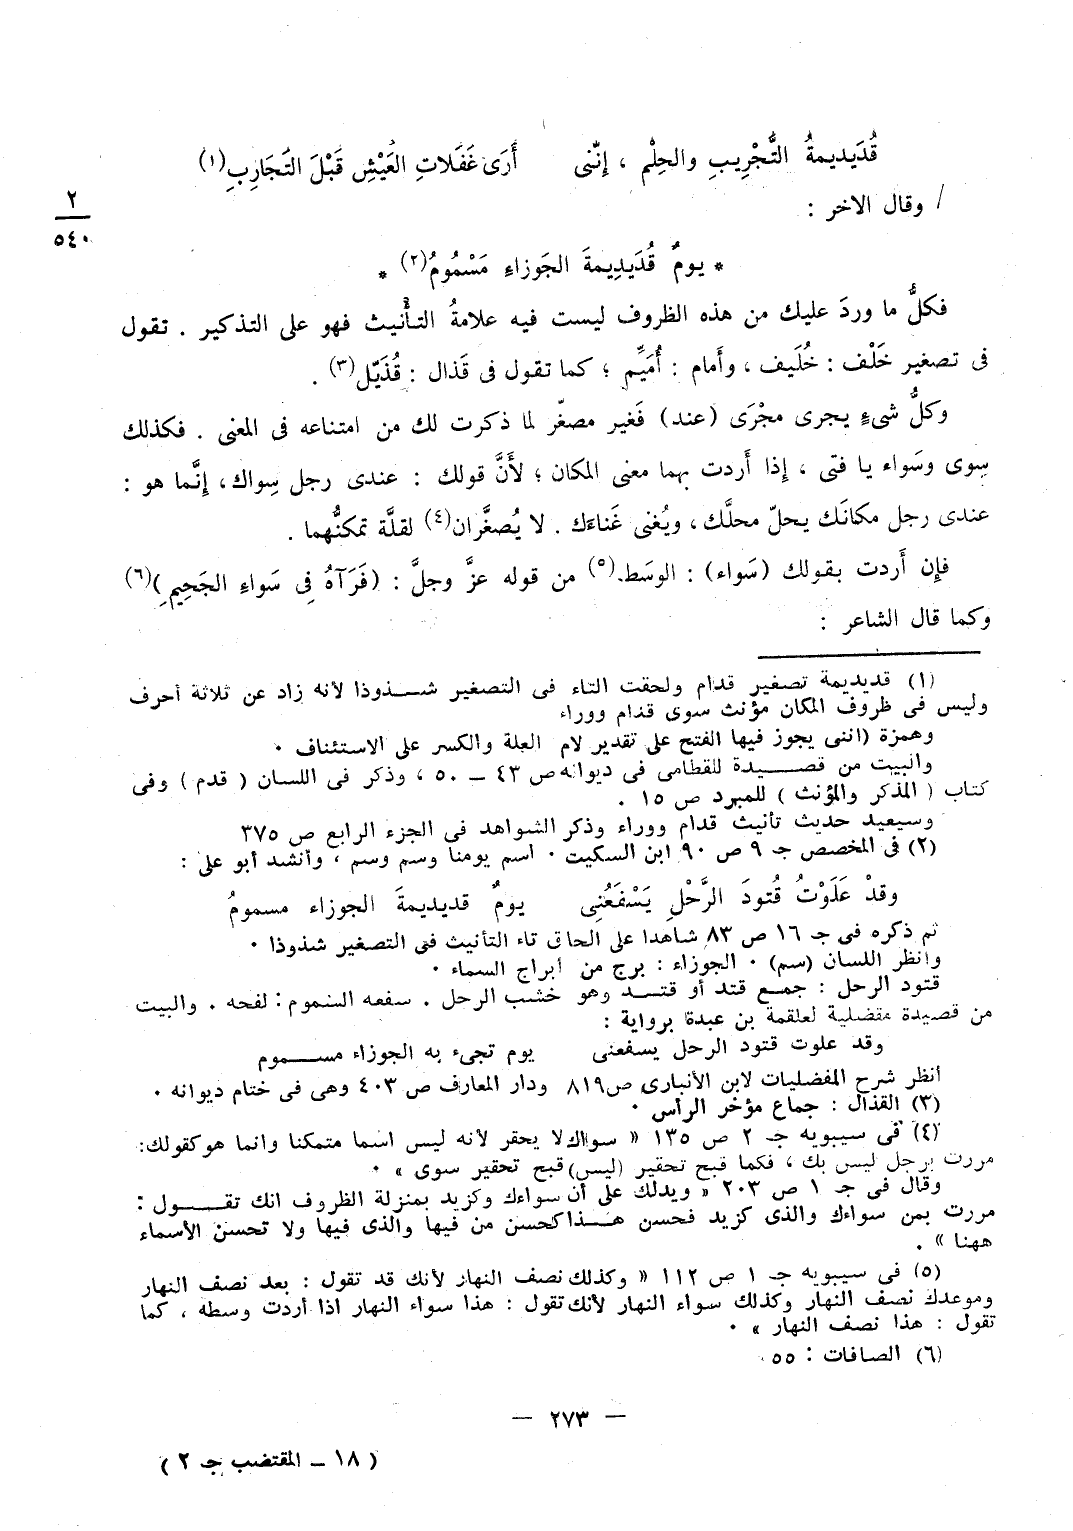 قُدَيديمةُ التَّجْرِيبِ والحِلْم ، إنّنى أَرَى غَفَلاتِ العَيْشِ قَبْلَ التَّجَارِبِ(١)
/ وقال الاخر :
٢
٥٤٠
* يومٌ قُدَيدِيمةَ الجَوزاءِ مَسْمُومُ(٢) *
فكلُّ ما وردَ عليك من هذه الظروف ليست فيه علامةُ التأْنيث فهو على التذكير . تقول
فى تصغير خَلْف : خُلَيف ، وأَمام : أُمَيِّم ؛ كما تقول فى قَذال : قُذَيّل(٣) .
وكلُّ شىءٍ يجرى مجْرَى (عند) فَغير مصغّر لما ذكرت لك من امتناعه فى المعنى . فكذلك
سِوى وسَواء يا فتى ، إِذا أَردت بهما معنى المكان ؛ لأَنَّ قولك : عندى رجل سِواك ، إِنَّما هو :
عندى رجل مكانَك يحلّ محلَّك ، ويُغنى غَناءَك . لا يُصغَّران(٤) لقلَّة تمكنُّهما .
فإِن أَردت بقولك (سَواء) : الوسَط(٥) من قوله عزَّ وجلَّ : (فَرَآهُ فِى سَواءِ الجَحِيمِ)(٦)
وكما قال الشاعر :
(١) قديديمة تصغير قدام ولحقت التاء فى التصغير شـذوذا لأنه زاد عن ثلاثة أحرف
وليس فى ظروف المكان مؤنث سوى قدام ووراء
وهمزة (اننى يجوز فيها الفتح على تقدير لام العلة والكسر على الاستئناف .
والبيت من قصـيدة للقطامى فى ديوانه ص ٤٣ ــ ٥٠ ، وذكر فى اللسان ( قدم ) وفى
كتاب ( المذكر والمؤنث ) للمبرد ص ١٥ .
وسيعيد حديث تأنيث قدام ووراء وذكر الشواهد فى الجزء الرابع ص ٣٧٥
(٢) فى المخصص جـ ٩ ص ٩٠ ابن السكيت . اسم يومنا وسم وسم ، وأنشد أبو على :
وقدْ عَلَوْتُ قُتودَ الرَّحْلِ يَسْفَعُنِى يومٌ قديديمةَ الجوزاء مسمومُ
ثم ذكره فى جـ ١٦ ص ٨٣ شاهدا على الحاق تاء التأنيث فى التصغير شذوذا .
وانظر اللسان (سم) . الجوزاء : برج من أبراج السماء .
قتود الرحل : جمـع قتد أو قتـد وهو خشب الرحل . سفعه السموم : لفحه . والبيت
من قصيدة مفضلية لعلقمة بن عبدة برواية :
وقد علوت قتود الرحل يسفعنى يوم تجىء به الجوزاء مسـموم
أنظر شرح المفضليات لابن الأنبارى ص٨١٩ ودار المعارف ص ٤٠٣ وهى فى ختام ديوانه .
(٣) القذال : جماع مؤخر الرأس .
(٤) فى سيبويه جـ ٢ ص ١٣٥ « سواك لا يحقر لأنه ليس اسما متمكنا وانما هو كقولك:
مررت برجل ليس بك ، فكما قبح تحقير (ليس) قبح تحقير سوى » .
وقال فى جـ ١ ص ٢٠٣ « ويدلك على أن سواءك وكزيد بمنزلة الظروف انك تقـول :
مررت بمن سواءك والذى كزيد فحسن هـذا كحسن من فيها والذى فيها ولا تحسن الأسماء
ههنا » .
(٥) فى سيبويه جـ ١ ص ١١٢ « وكذلك نصف النهار لأنك قد تقول : بعد نصف النهار
وموعدك نصف النهار وكذلك سواء النهار لأنك تقول : هذا سواء النهار اذا أردت وسطه ، كما
تقول : هذا نصف النهار » .
(٦) الصافات : ٥٥
— ٢٧٣ —
( ١٨ ــ المقتضب جـ ٢ )